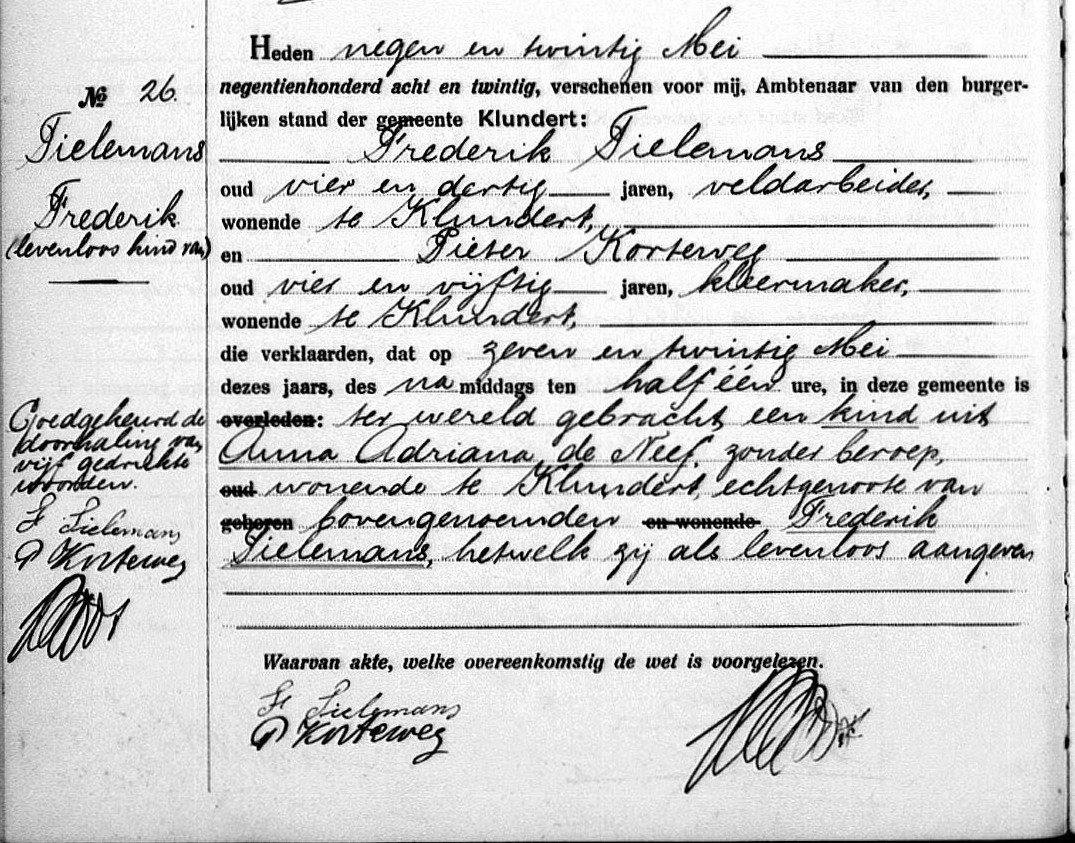 № 26.
Tielemans
Frederik
(levenloos kind van)
Goedgekeurd de
doorhaling van
vijf gedrukte
woorden.
F Tielemans
P Korteweg
Heden negen en twintig Mei
negentienhonderd acht en twintig, verschenen voor mij, Ambtenaar van den burger-
lijken stand der gemeente Klundert:
Frederik Tielemans
oud vier en dertig jaren, veldarbeider,
wonende te Klundert,
en Pieter Korteweg
oud vier en vijftig jaren, kleermaker,
wonende te Klundert,
die verklaarden, dat op zeven en twintig Mei
dezes jaars, des na middags ten half één ure, in deze gemeente is
overleden: ter wereld gebracht een kind uit
Anna Adriana de Neef, zonder beroep,
oud wonende te Klundert, echtgenoote van
geboren bovengenoemden en wonende Frederik
Tielemans, hetwelk zij als levenloos aangeven
Waarvan akte, welke overeenkomstig de wet is voorgelezen.
F Tielemans
P Korteweg